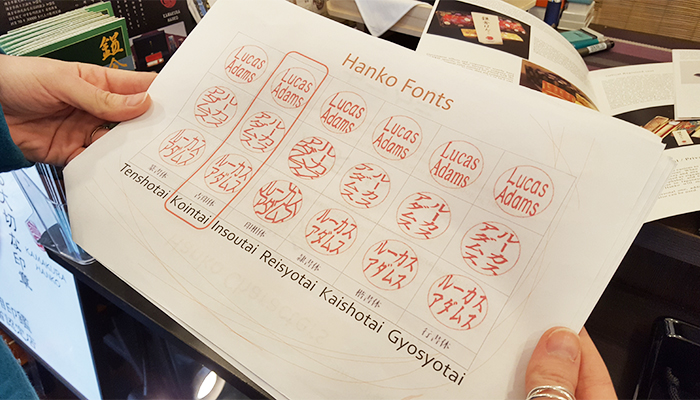 Hanko Fonts
Lucas
Adams
Lucas
Adams
Lucas
Adams
Lucas
Adams
Lucas
Adams
Lucas
Adams
ルーカス
アダムス
ルーカス
アダムス
ルーカス
アダムス
ルーカス
アダムス
ルーカス
アダムス
ルーカス
アダムス
ルーカス
アダムス
ルーカス
アダムス
ルーカス
アダムス
ルーカス
アダムス
ルーカス
アダムス
ルーカス
アダムス
篆書体
古印体
印相体
隷書体
楷書体
行書体
Tenshotai
Kointai
Insoutai
Reisyotai
Kaishotai
Gyosyotai
KAMAKURA
HANKO